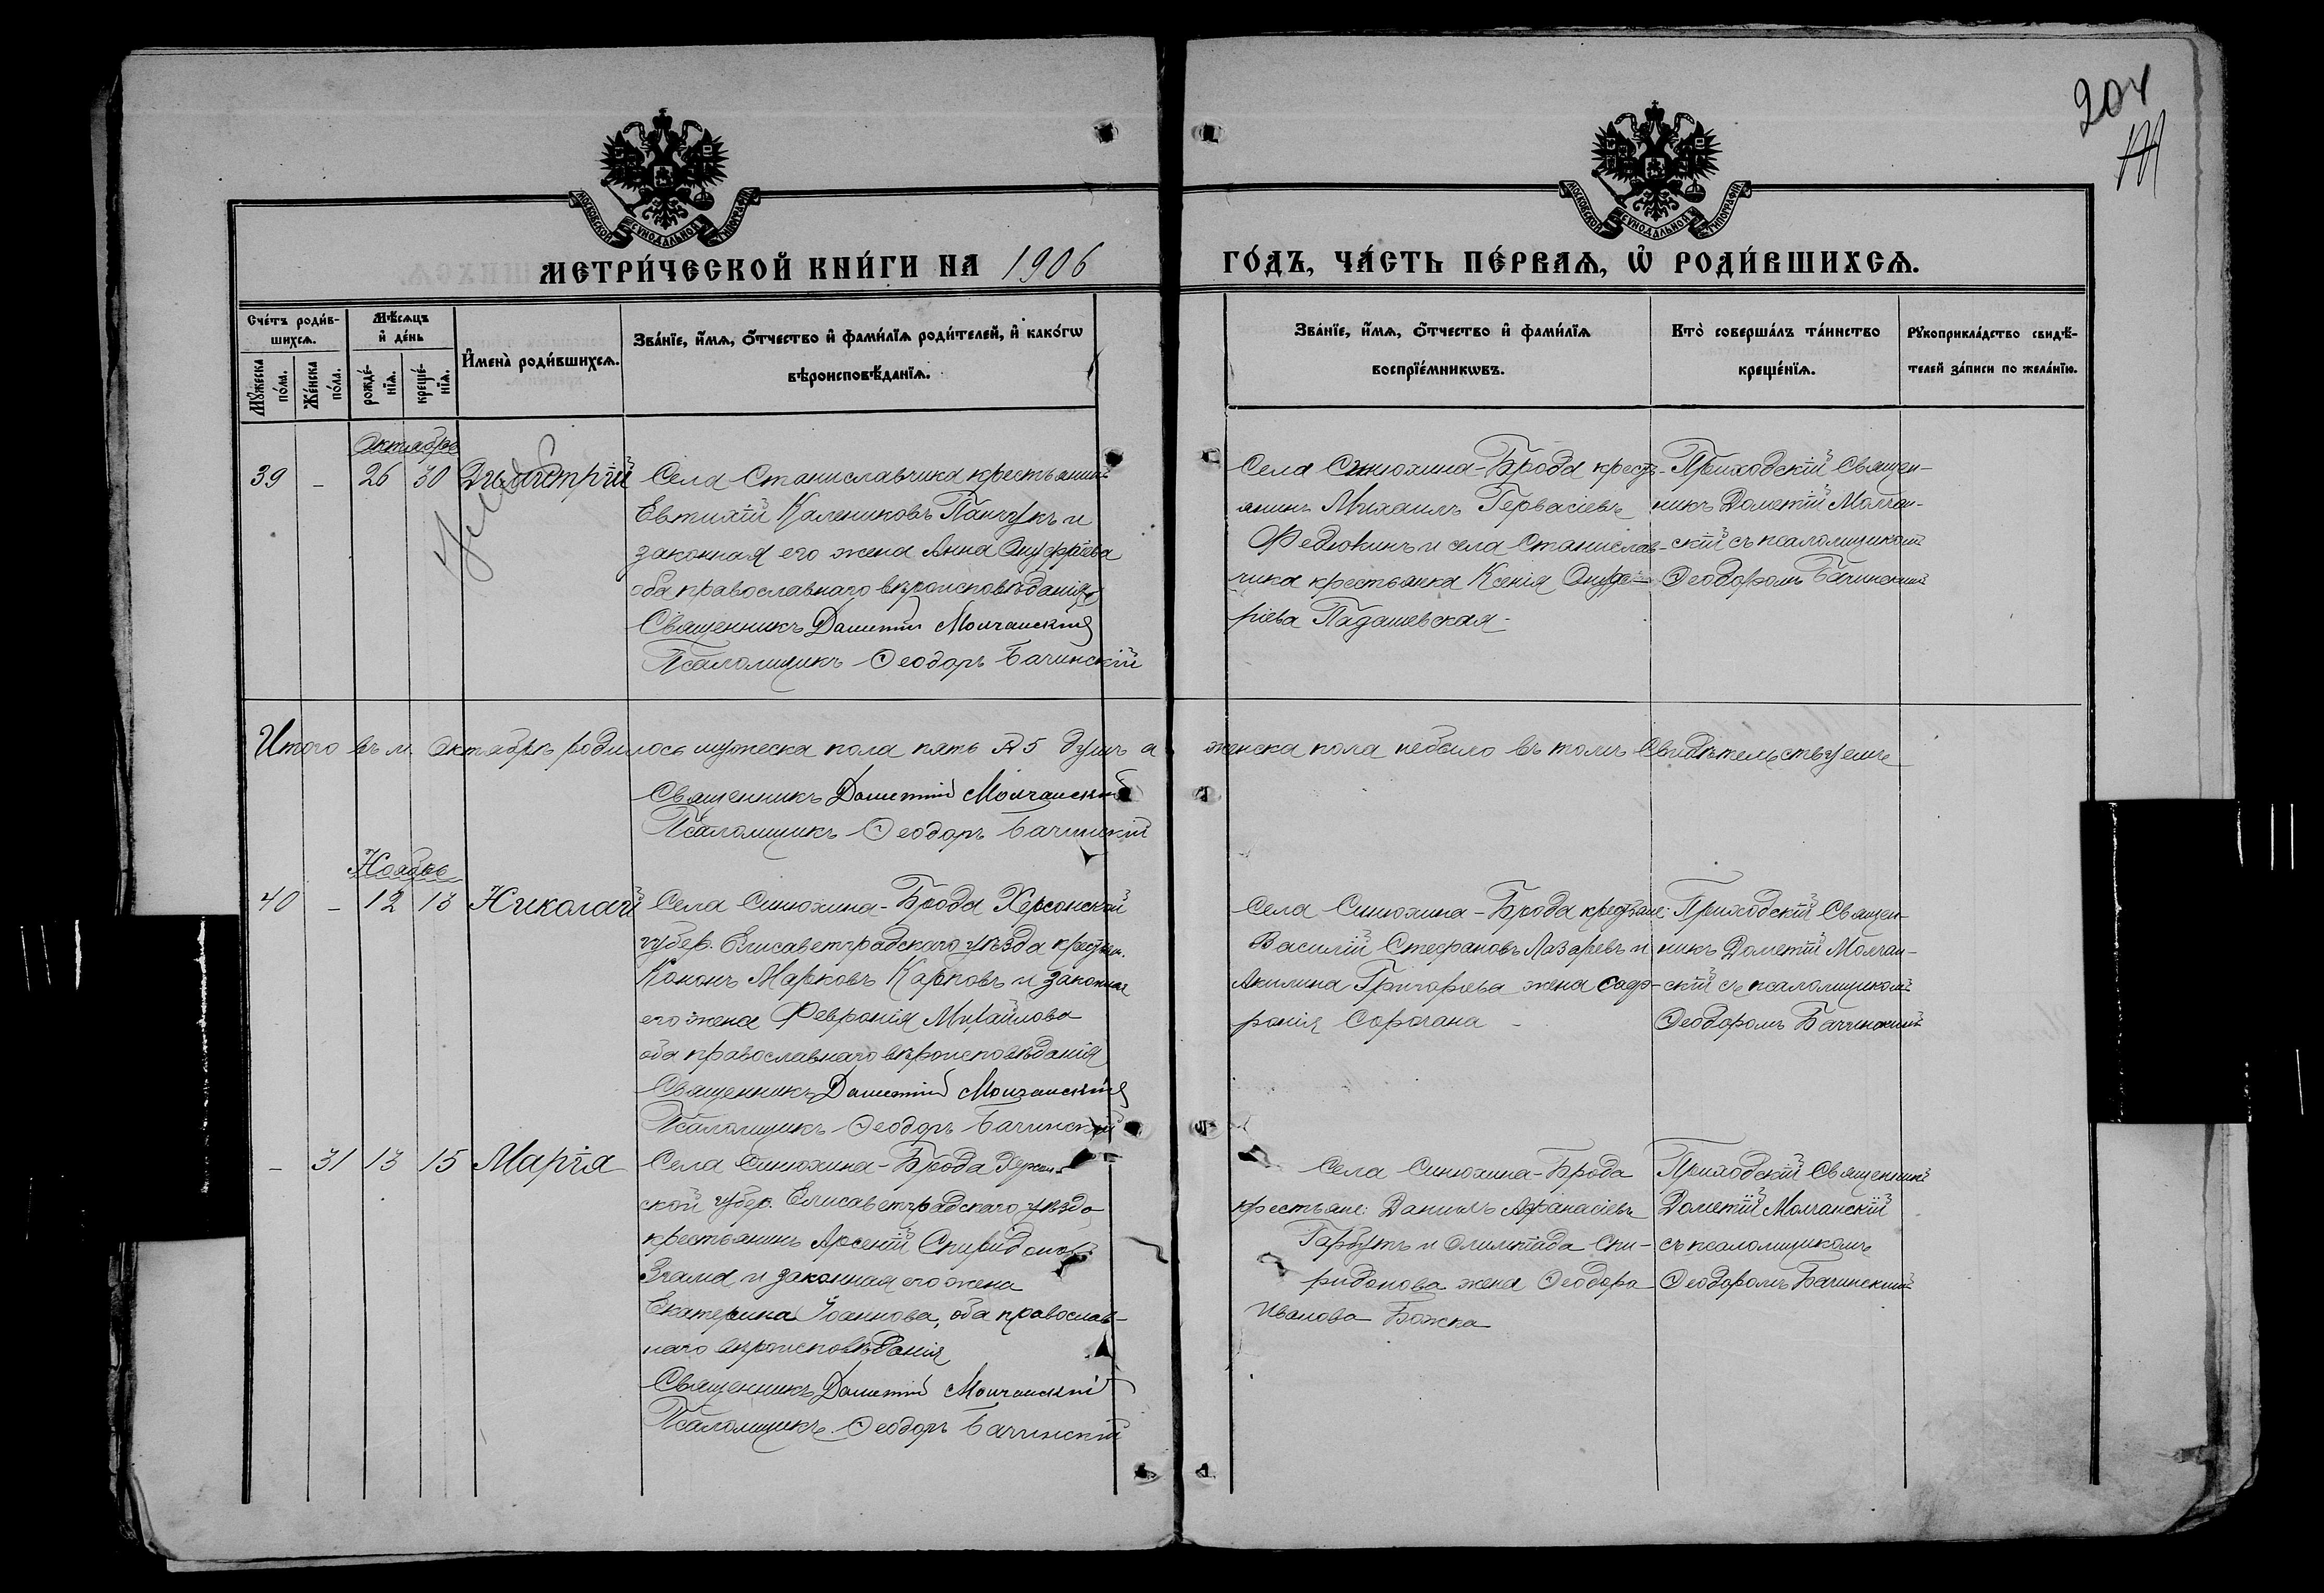 204
МОСКОВСКОЙ СѴНОДАЛЬНОЙ ТИПОГРАФІИ
МОСКОВСКОЙ СѴНОДАЛЬНОЙ ТИПОГРАФІИ
МЕТРИ́ЧЕСКОЙ КНИ́ГИ НА 1906
ГО́ДЪ, ЧА́СТЬ ПЕ́РВАѦ, Ѡ҆ РОДИ́ВШИХСѦ.
Сче́тъ роди́в-
шихсѧ.
Мꙋ́жеска по́ла.
Же́нска по́ла.
Мѣ́сѧцъ
и҆ де́нь
рожде́-
нїѧ.
креще́-
нїѧ.
И҆мена̀ роди́вшихсѧ.
Зва́нїе, и҆́мѧ, ѻ҆́тчество и҆ фами́лїѧ роди́телей, и҆ како́гѡ
вѣроисповѣ́данїѧ.
Зва́нїе, и҆́мѧ, ѻ҆́тчество и҆ фами́лїѧ
воспрїе́мникѡвъ.
Кто̀ соверша́лъ та́инство
креще́нїѧ.
Рꙋкоприкла́дство свидѣ́-
телей за́писи по жела́нїю.
Октябрь
39 - 26 30 Димитрій
Села Станиславчика крестьянинъ
Евтихій Калениковъ Панчукъ и
законная его жена Анна Онуфріева
оба православнаго вѣроисповѣданія
Священникъ Дометій Молчанскій
Псаломщикъ Ѳеодоръ Бачинскій
Села Синюхина-Брода кресть-
янинъ Михаилъ Гервасіевъ
Федюкинъ и села Станислав-
чика крестьянка Ксенія Онуф-
ріева Падашевская
Приходскій Священ-
никъ Дометій Молчан-
скій съ псаломщикомъ
Ѳеодоромъ Бачинскимъ
Итого въ м. Октябрѣ родилось мужеска пола пять 5 душъ а женска пола небыло въ томъ свидѣтельствуемъ
Священникъ Дометій Молчанскій
Псаломщикъ Ѳеодоръ Бачинскій
Ноябрь
40 - 12 13 Николай
Села Синюхина-Брода Херсонской
губер. Елисаветградскаго уѣзда крестьян.
Кононъ Марковъ Карповъ и законная
его жена Февронія Михайлова
оба православнаго вѣроисповѣданія
Священникъ Дометій Молчанскій
Псаломщикъ Ѳеодоръ Бачинскій
Села Синюхина-Брода крестьяне:
Василій Стефановъ Лазаревъ и
Акилина Григорьева жена Соф-
ронія Сорочана
Приходскій Священ-
никъ Дометій Молчан-
скій съ псаломщикомъ
Ѳеодоромъ Бачинскимъ
- 31 13 15 Марія
Села Синюхина-Брода Херсон-
ской губер. Елисаветградскаго уѣзда
крестьянинъ Арсеній Спиридоновъ
и законная его жена
Екатерина Іоаннова, оба православ-
наго вѣроисповѣданія
Священникъ Дометій Молчанскій
Псаломщикъ Ѳеодоръ Бачинскій
Села Синюхина-Брода
крестьяне: Даниилъ Афанасіевъ
Гарбузъ и Олимпіада Спи-
ридонова жена Ѳеодора
Иванова Божка
Приходскій Священникъ
Дометій Молчанскій
съ псаломщикомъ
Ѳеодоромъ Бачинскимъ